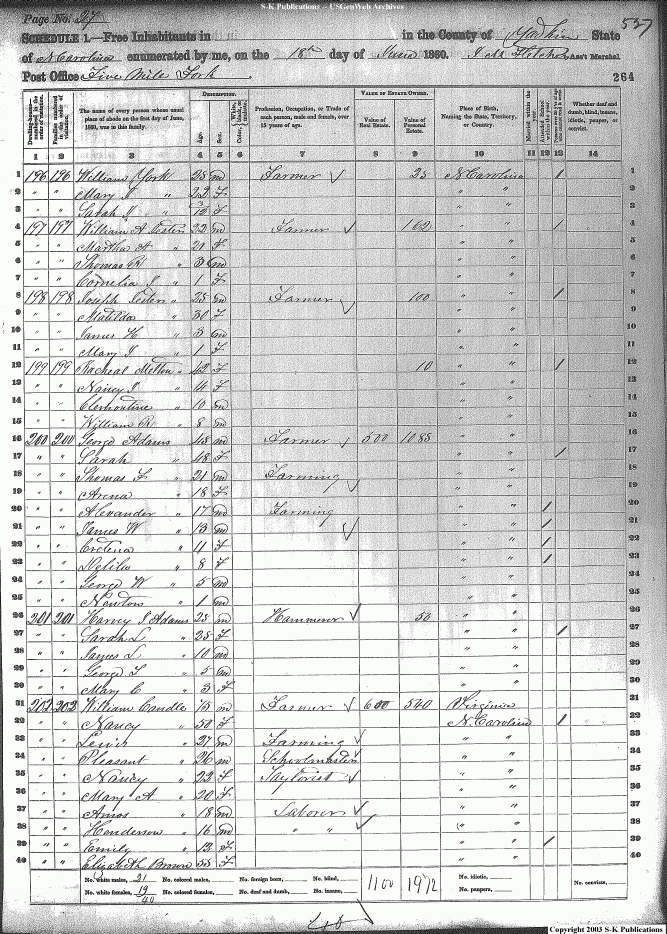 S-K Publications - USGenWeb Archives
Page No. 27
527
SCHEDULE 1.—Free Inhabitants in in the County of Yadkin State
of N Carolina enumerated by me, on the 18th day of June 1860. Fletcher Ass't Marshal.
Post Office Five Mile Fork
264
Dwelling-houses— numbered in the order of visitation. Families numbered in the order of visitation. The name of every person whose usual place of abode on the first day of June, 1860, was in this family. DESCRIPTION. Age. Sex. Color, White, black, or mulatto. Profession, Occupation, or Trade of each person, male and female, over 15 years of age. VALUE OF ESTATE OWNED. Value of Real Estate. Value of Personal Estate. Place of Birth, Naming the State, Territory, or Country. Married within the year. Attended School within the year. Whether deaf and dumb, blind, insane, idiotic, pauper, or convict.
1 2 3 4 5 6 7 8 9 10 11 12 13 14
1 196 196 William York 25 m Farmer 25 N Carolina / 1
2 " " Mary J " 22 F " " 2
3 " " Sarah J " F " " 3
4 197 197 William A 22 m Farmer 102 " " / 4
5 " " Martha A " 21 F " " 5
6 " " Thomas R " 3 m " " 6
7 " " Cornelia J " 1 F " " 7
8 198 198 Joseph " 25 m Farmer 100 " " / 8
9 " " Matilda " 30 F " " 9
10 " " James H " 3 m " " 10
11 " " Mary J " 1 F " " 11
12 199 199 Racheal Melton " 42 F 10 " " / 12
13 " " Nancy J " 14 F " " 13
14 " " Clementine " 10 m " " 14
15 " " William R " 8 m " " 15
16 200 200 George Adams 45 m Farmer 500 1085 " " 16
17 " " Sarah " 48 F " " / 17
18 " " Thomas F " 21 m Farming " " 18
19 " " Arena " 18 F " " 19
20 " " Alexander " 17 m Farming " " / 20
21 " " James W " 13 m " " / 21
22 " " " 11 F " " / 22
23 " " " 8 F " " / 23
24 " " George W " 5 m " " 24
25 " " Newton " 1 m " " 25
26 201 201 Harvey J Adams 25 m Hammerer 50 " " 26
27 " " Sarah L " 25 F " " / 27
28 " " James L " 10 m " " 28
29 " " George F " 5 m " " 29
30 " " Mary C " 3 F " " 30
31 202 202 William Candle 75 m Farmer 600 540 Virginia 31
32 " " Nancy " 50 F N. Carolina / 32
33 " " Lewis " 27 m Farming " " 33
34 " " Pleasant " 26 m Schoolmaster " " 34
35 " " Nancy " 22 F Taylorist " " 35
36 " " Mary A " 20 F " " 36
37 " " Amos " 18 m Laborer " " 37
38 " " Henderson " 16 m " " " " 38
39 " " Emily " 12 F " " / 39
40 " " Elizabeth Brown 55 F " " 40
No. white males, 21 No. colored males, No. foreign born, No. blind, 1100 1972 No. idiotic, No. convicts,
No. white females, 19 No. colored females, No. deaf and dumb, No. insane, No. paupers,
40
Copyright 2003 S-K Publications